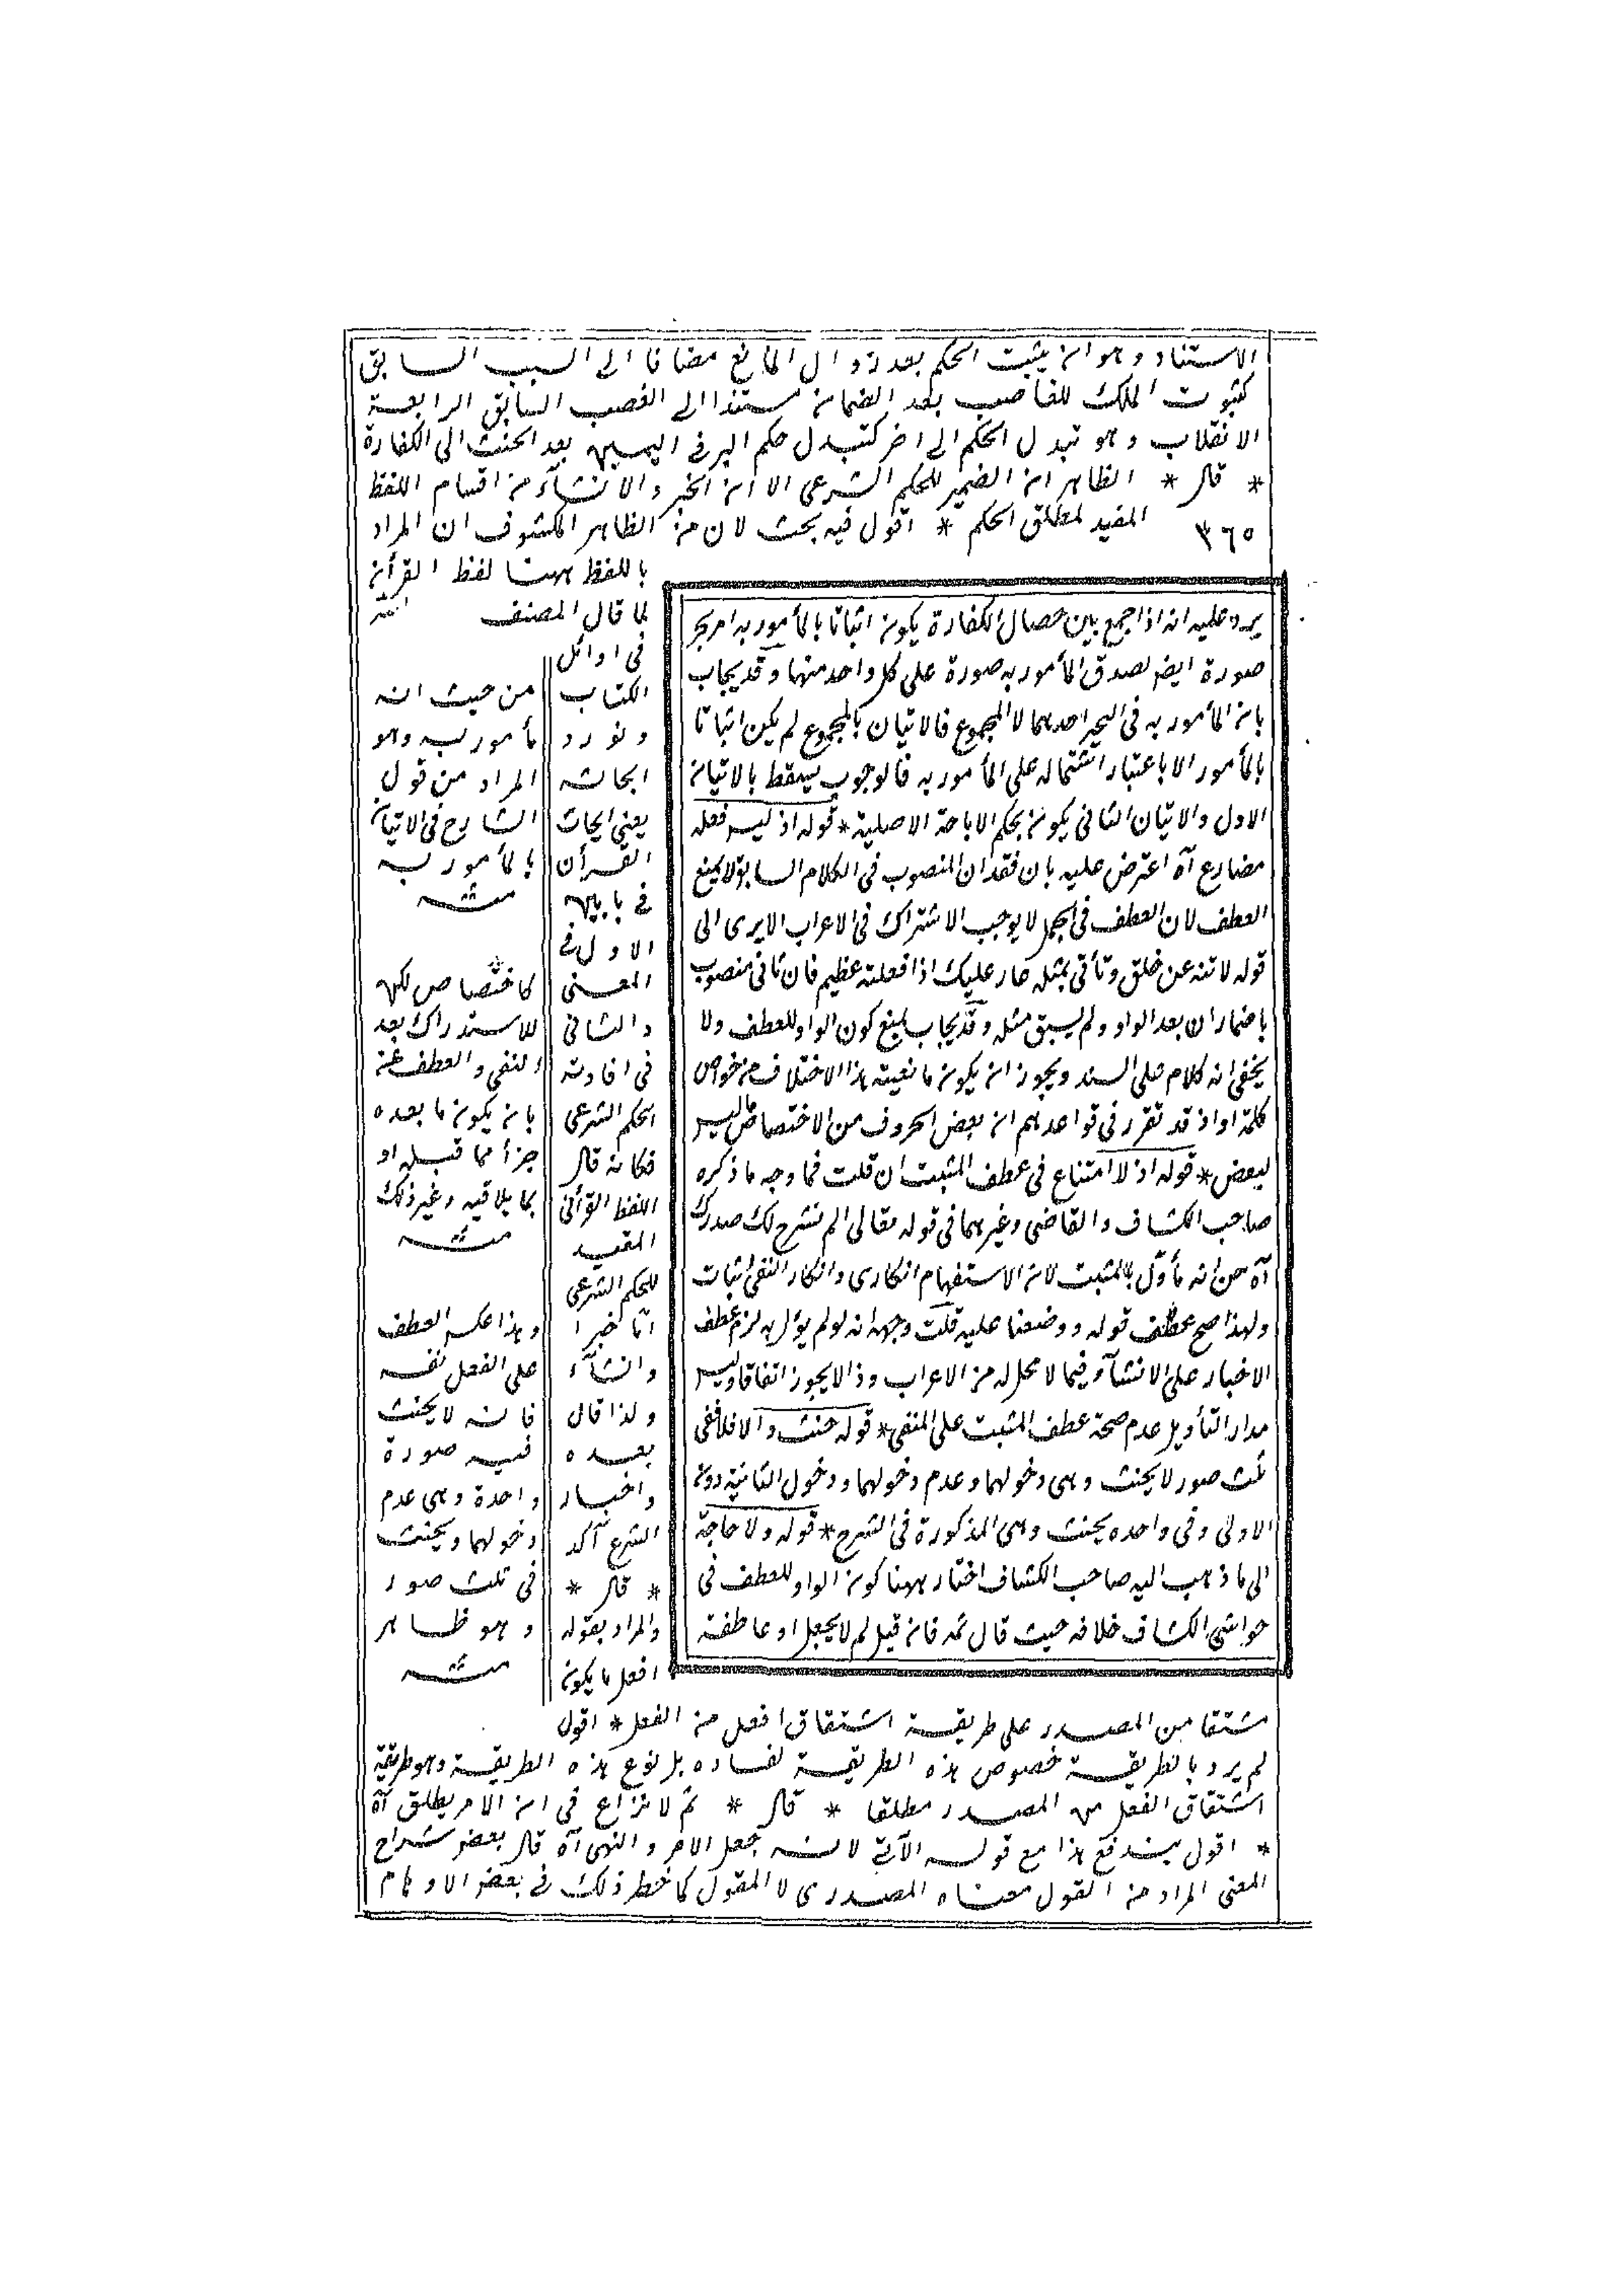 الاستناد وهو ان يثبت الحكم بعد زوال المانع مضافا الى السبب السابق
كثبوت الملك للغاصب بعد الضمان مستندا الى الغصب السابق الرابعة
الانقلاب وهو تبدل الحكم الى اخر كتبدل حكم البر فى اليمين بعد الحنث الى الكفارة
* قال * الظاهر ان الضمير للحكم الشرعى الا ان الخبر والانشآء من اقسام اللفظ
٣٦٥ المفيد لمطلق الحكم * اقول فيه بحث لان من الظاهر المكشوف ان المراد
باللفظ ههنا لفظ القرأن
لما قال المصنف
فى اوائل
الكتاب
ونورد
ابحاثه
يعنى ابحاث
القرأن
فى بابين
الاول فى
المعنى
والثانى
فى افادته
الحكم الشرعى
فكانه قال
اللفظ القرأنى
المفيد
للحكم الشرعى
اما خبر ا
وانشآء
ولذا قال
بعده
واخبار
الشرع آكد
* قال *
والمراد بقوله
افعل ما يكون
مشتقا من المصدر على طريقة اشتقاق افعل من الفعل * اقول
لم يرد بالطريقة خصوص هذه الطريقة لفساده بل نوع هذه الطريقة وهو طريقة
اشتقاق الفعل من المصدر مطلقا * قال * ثم لا نزاع فى ان الامر يطلق آه
* اقول يندفع هذا مع قوله الآتى لانه جعل الامر والنهى آه قال بعض شراح
المعنى المراد من القول معناه المصدرى لا المقول كما خطر ذلك فى بعض الاوهام
يرد عليه انه اذا جمع بين خصال الكفارة يكون اتيانا بالمأمور به امر بحر
صورة ايضا لصدق المأمور به صورة على كل واحد منهما وقد يجاب
بان المأمور به فى التخيير احدهما لا المجموع فالاتيان بالمجموع لم يكن اتيانا
بالمأمور الا باعتبار اشتماله على المأمور به فالوجوب يسقط بالاتيان
الاول والاتيان الثانى يكون بحكم الاباحة الاصلية * قوله اذ ليس فعله
مضارع آه اعترض عليه بان فقدان المنصوب فى الكلام السابق لا يمنع
العطف لان العطف فى الجمل لا يوجب الاشتراك فى الاعراب الا يرى الى
قوله لا تنه عن خلق وتأتى بمثله عار عليك اذا فعلته عظيم فان تأتى منصوب
باضمار ان بعد الواو ولم يسبق مثله وقد يجاب بمنع كون الواو للعطف ولا
يخفى انه كلام على السند ويجوز ان يكون ما نعيته هذا الاختلاف من خواص
كلمة او اذ قد تقرر فى قواعدهم ان بعض الحروف من الاختصاص ما ليس
لبعض * قوله اذ لا امتناع فى عطف المثبت ان قلت فما وجه ما ذكره
صاحب الكشاف والقاضى وغيرهما فى قوله تعالى الم نشرح لك صدرك
آه من انه مأول بالمثبت لان الاستفهام انكارى وانكار النفى اثبات
ولهذا صح عطف قوله ووضعنا عليه قلت وجهه انه لو لم يؤل به لزم عطف
الاخبار على الانشآء فيما لا محل له من الاعراب وذا لا يجوز اتفاقا وليس
مدار التأويل عدم صحة عطف المثبت على المنفى * قوله حنث والا فلا ففى
ثلث صور لا يحنث وهى دخولهما وعدم دخولهما ودخول الثانية دون
الاولى وفى واحده يحنث وهى المذكورة فى الشرح * قوله ولا حاجة
الى ما ذهب اليه صاحب الكشاف اختار ههنا كون الواو للعطف فى
حواشى الكشاف خلافه حيث قال ثمه فان قيل لم لا يجعل او عاطفة
من حيث انه
مأمور به وهو
المراد من قول
الشارح فى الاتيان
بالمأمور به
منه
كاختصاص لكن
للاستدراك بعد
النفى والعطف
بان يكون ما بعده
جزأ مما قبله او
بما يلاقيه وغير ذلك
منه
وهذا عكس العطف
على الفعل نفسه
فانه لا يحنث
فيه صورة
واحدة وهى عدم
دخولهما ويحنث
فى ثلث صور
وهو ظاهر
منه